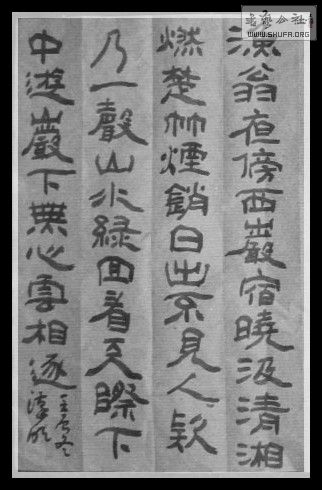 書藝公社
WWW.SHUFA.ORG
漁翁夜傍西巖宿曉汲清湘
燃楚竹煙銷日出不見人欵
乃一聲山水綠回看天際下
中遊巖下無心雲相逐